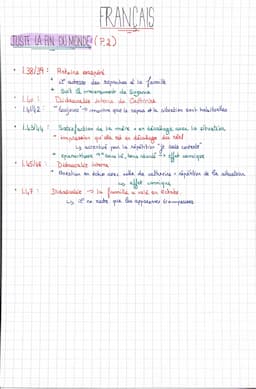 FRANÇAIS
JUSTE LA FIN DU MONDE (P.2)
• l.38/39 : Antoine exaspéré
↳ adresse des reproches à la famille
• Suit le mouvement de Suzanne
• l.40 : Didascalie interne de Catherine
• l.41/42 : "toujours" → montre que la scène et la situation sont habituelles
• l.43/44 : Satisfaction de la mère → en décalage avec la situation
• impression qu'elle est en décalage du réel
↳ accentué par la répétition "je suis contente"
effet comique
• l.45/46 : Didascalie interne
• Question en écho avec celle de Catherine → répétition de la situation
↳ effet comique
• l.47 : Didascalie → la famille a volé en éclats.
↳ il ne reste que les apparences trompeuses